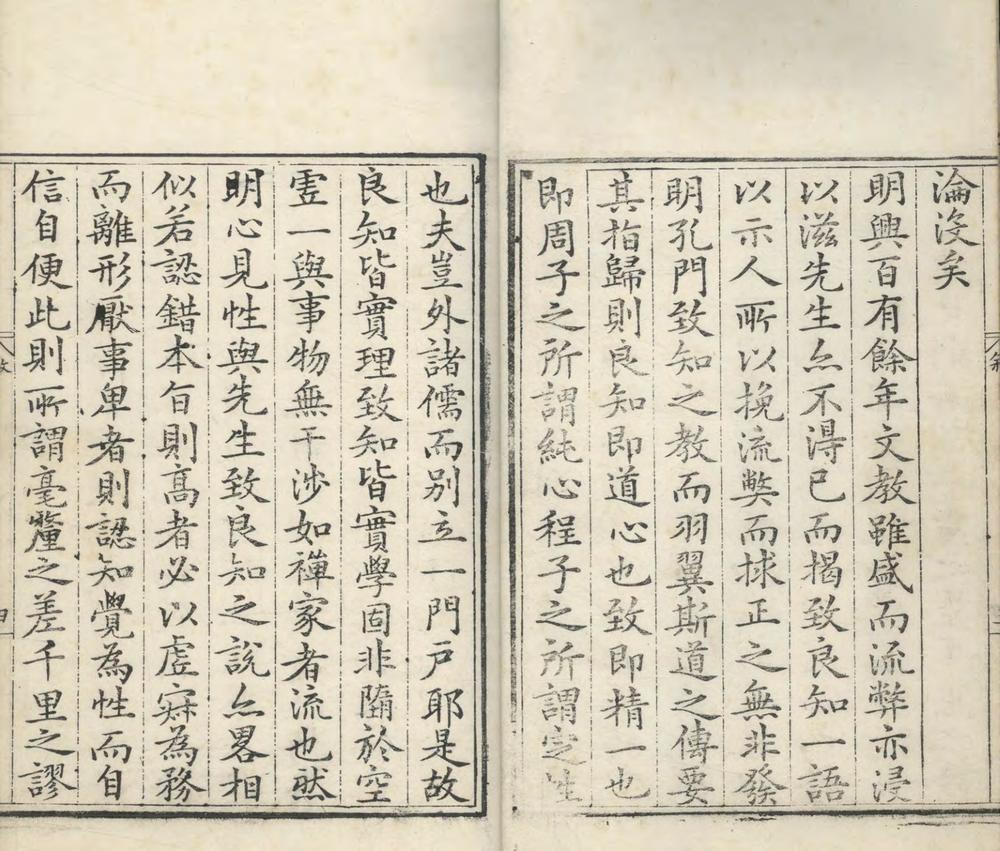 淪沒矣
明興百有餘年文教雖盛而流弊亦浸
以滋先生亦不得已而揭致良知一語
以示人所以挽流獘而捄正之無非發
明孔門致知之教而羽翼斯道之傳要
其指歸則良知即道心也致即精一也
即周子之所謂純心程子之所謂定性
也夫豈外諸儒而別立一門戶耶是故
良知皆實理致知皆實學固非隨於空
虗一與事物無干涉如禪家者流也然
明心見性與先生致良知之說亦畧相
似若認錯本旨則高者必以虗寂為務
而離形厭事卑者則認知覺為性而自
信自便此則所謂毫釐之差千里之謬